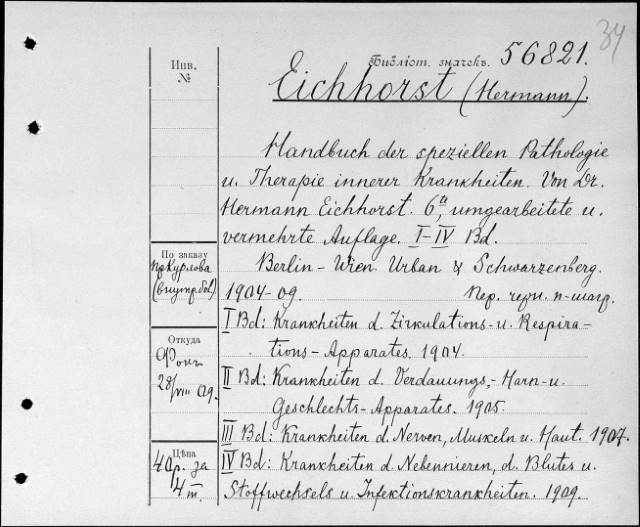 34
Библіот. значекъ. 56821.
Инв.
№
Eichhorst (Hermann).
Handbuch der speziellen Pathologie
u. Therapie innerer Krankheiten. Von Dr.
Hermann Eichhorst. 6te, umgearbeitete u.
vermehrte Auflage. I–IV Bd.
По заказу
(внутр. бол.)
Berlin – Wien Urban & Schwarzenberg.
1904-09. Пер. черн. п-марр.
I Bd: Krankheiten d. Zirkulations- u. Respira-
tions-Apparates. 1904.
Откуда
28/VIII 09.
II Bd: Krankheiten d. Verdauungs,- Harn- u.
Geschlechts-Apparates. 1905.
III Bd: Krankheiten d. Nerven, Muskeln u. Haut. 1907.
Цѣна
40 р. за
4 т.
IV Bd: Krankheiten d. Nebennieren, d. Blutes u.
Stoffwechsels u. Infektionskrankheiten. 1909.